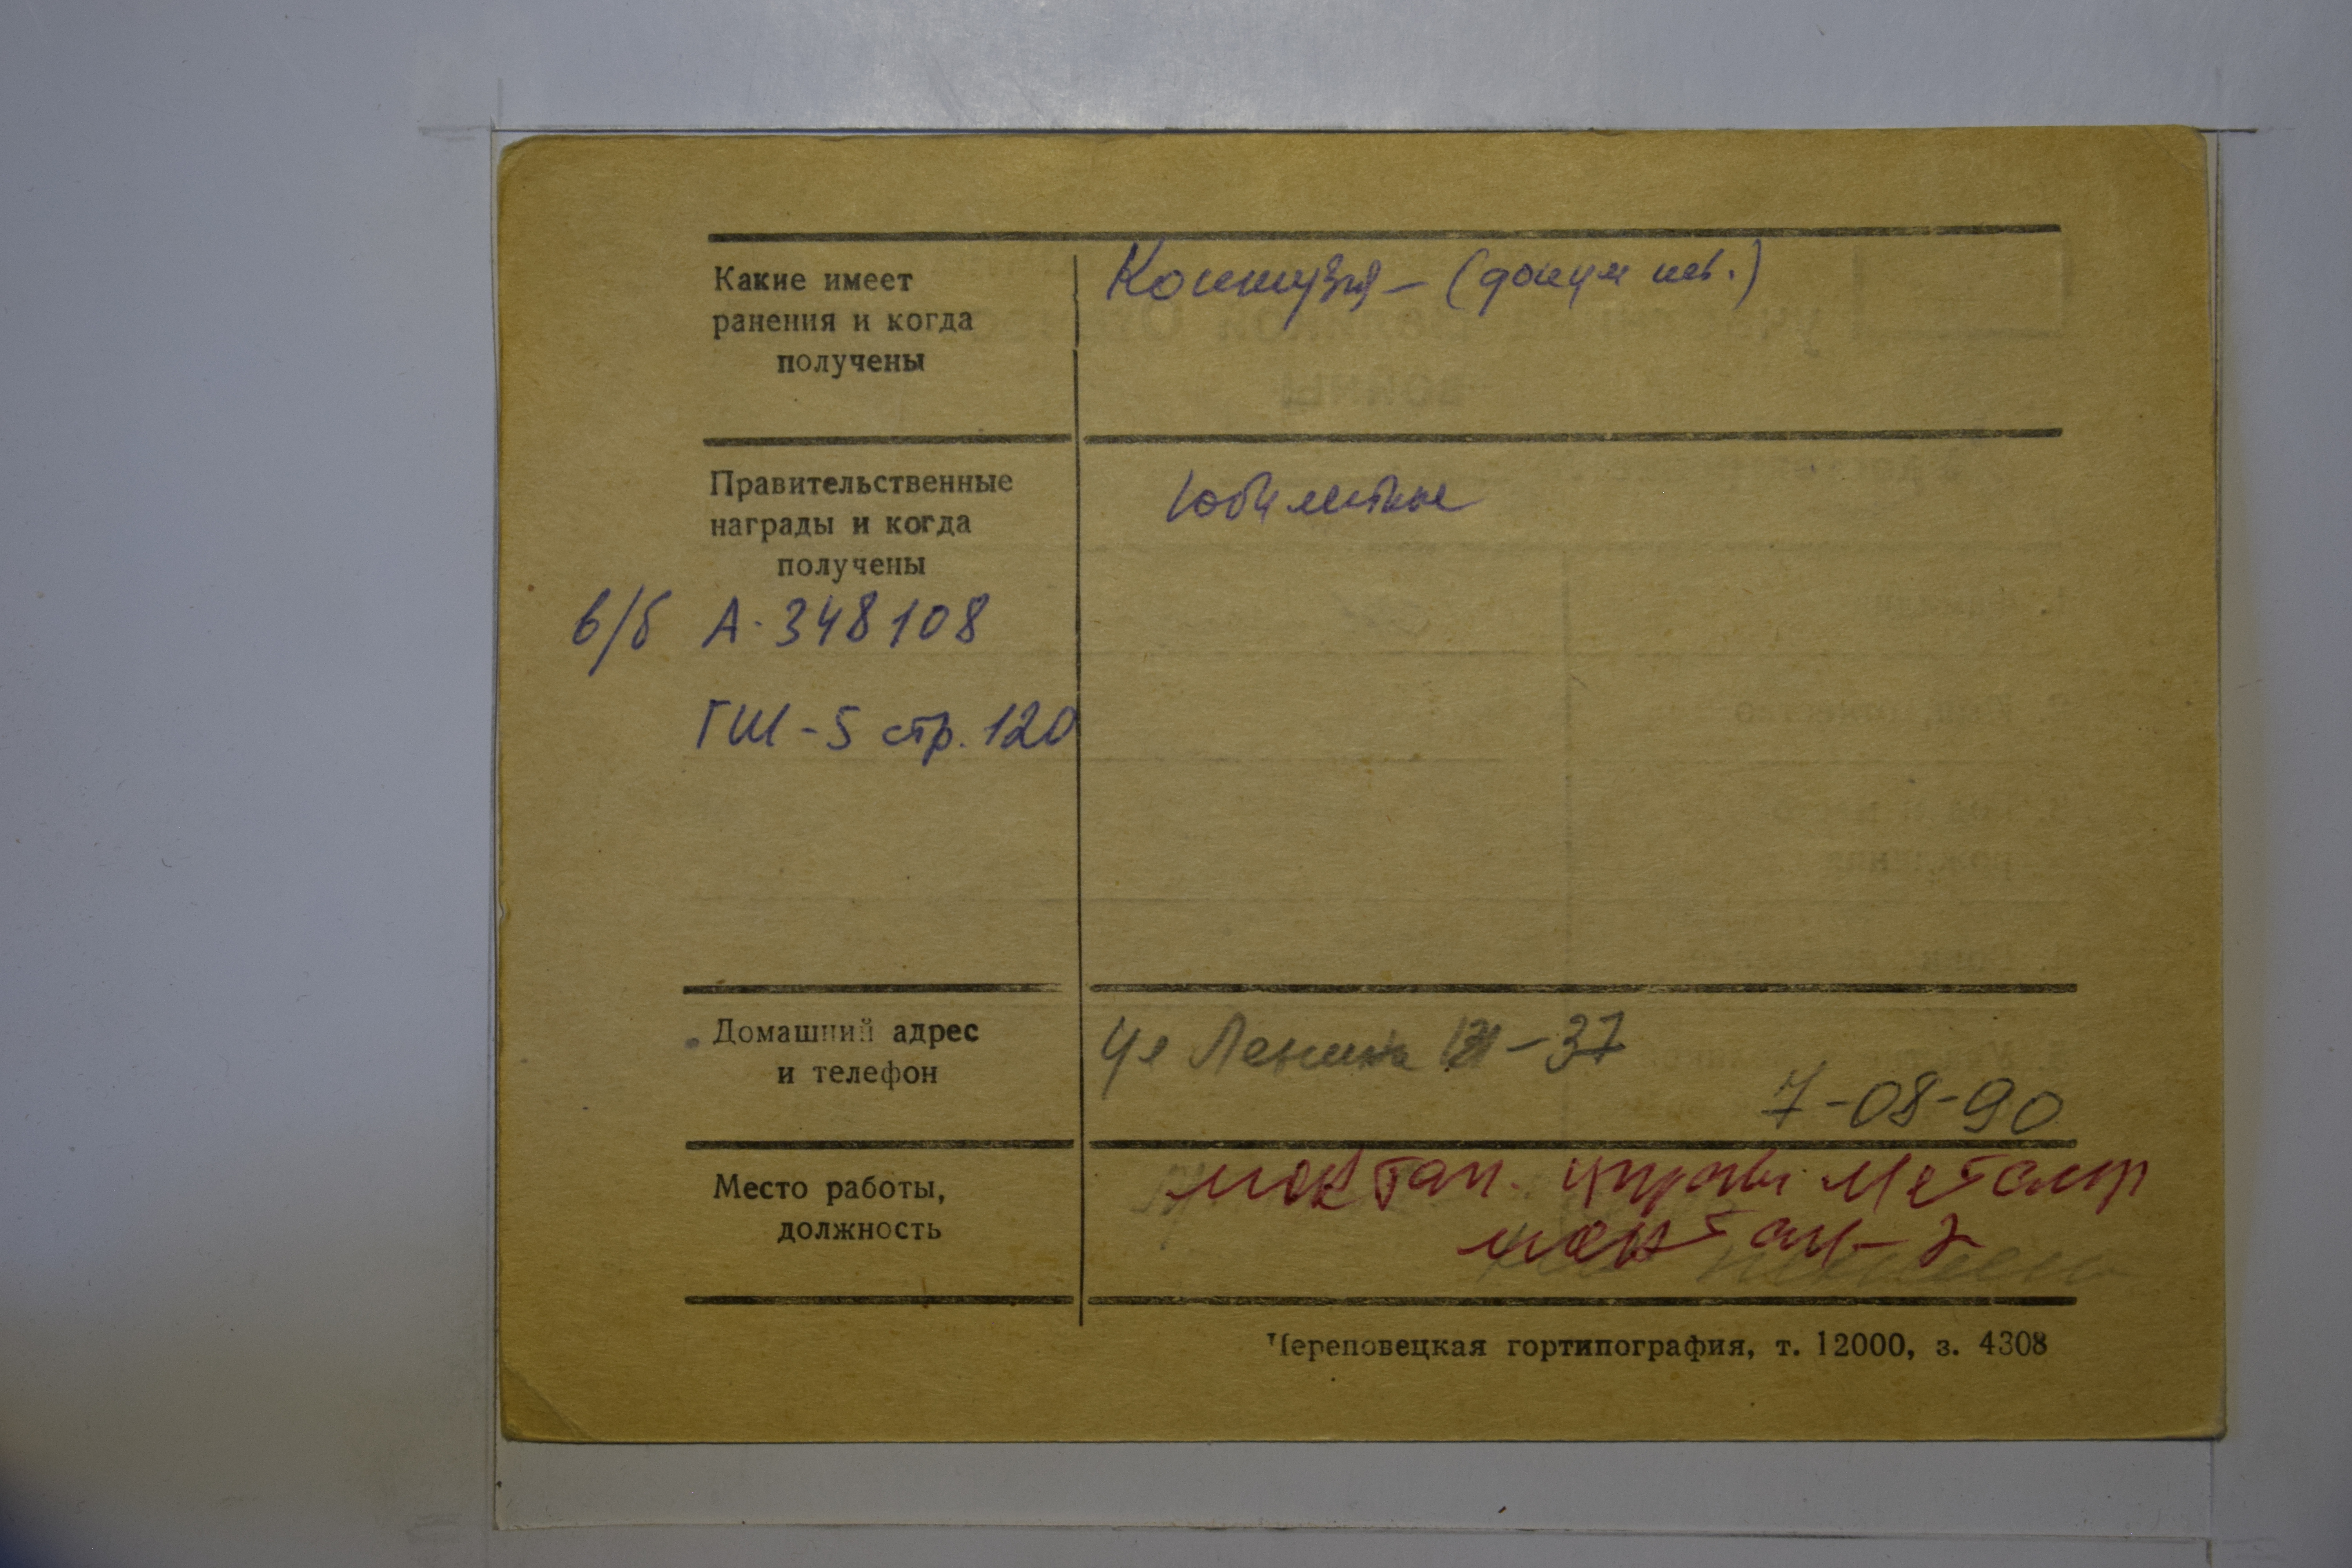 Какие имеет
ранения и когда
получены
Контузия - (докум нет.)
Правительственные
награды и когда
получены
Юбилейные
в/б А. 348108
ГШ-5 стр. 120
Домашний адрес
и телефон
Ул Ленина 131-37
7-08-90
Место работы,
должность
монтаж. управ.
монтаж-
Череповецкая гортипография, т. 12000, з. 4308